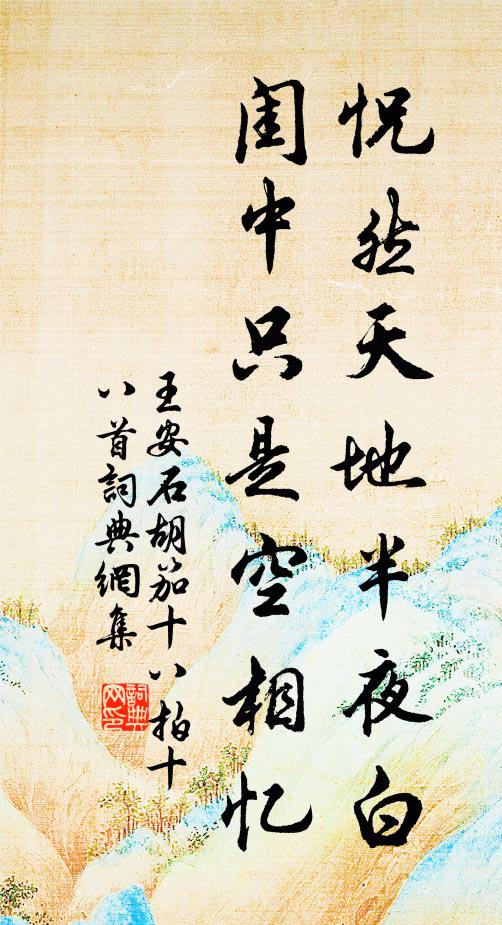 怳然天地半夜白
闺中只是空相忆
王安石胡笳十八拍十
八首詞典網集
詞典
网印